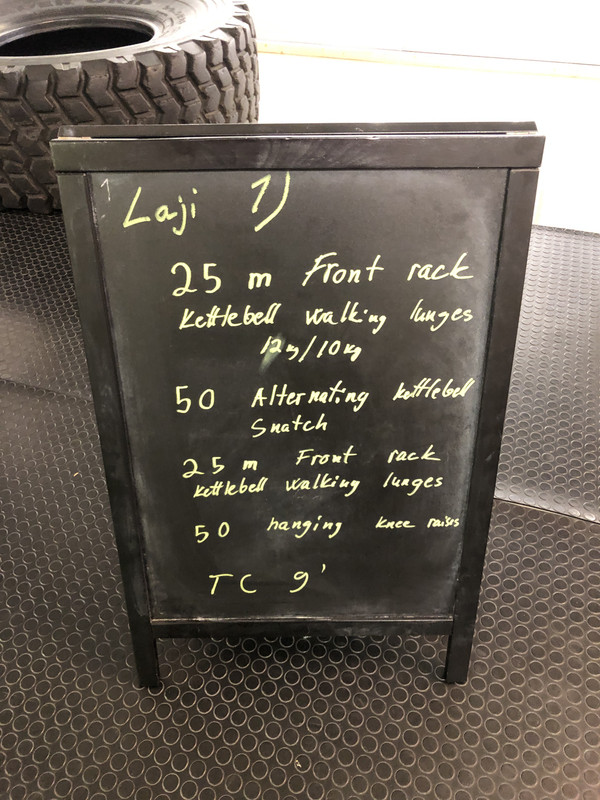 Laji 1)
25 m Front rack
kettlebell walking lunges
12kg/10kg
50 Alternating kettlebell
Snatch
25 m Front rack
kettlebell walking lunges
50 hanging knee raises
TC 9'